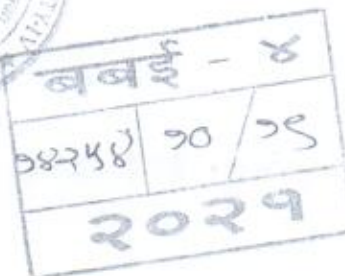 बबई - ४
१४२५४ १० / १९
२०२१